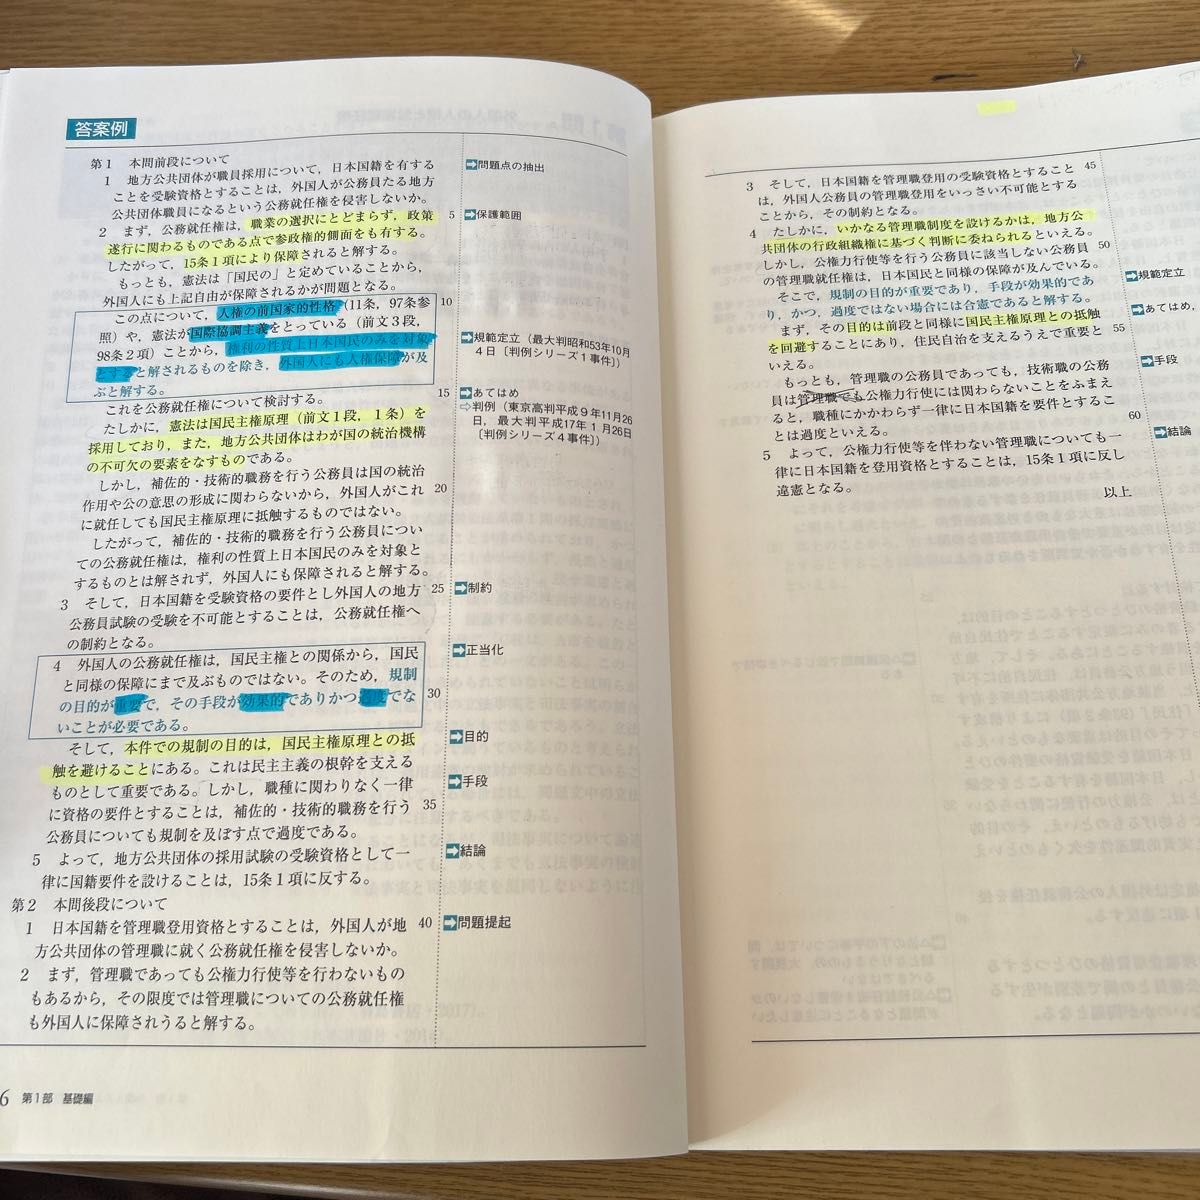 答案例
第1　本問前段について
1　地方公共団体が職員採用について，日本国籍を有する
ことを受験資格とすることは，外国人が公務員たる地方
公共団体職員になるという公務就任権を侵害しないか。
2　まず，公務就任権は，職業の選択にとどまらず，政策
遂行に関わるものである点で参政権的側面をも有する。
したがって，15条1項により保障されると解する。
もっとも，憲法は「国民の」と定めていることから，
外国人にも上記自由が保障されるかが問題となる。
この点について，人権の前国家的性格（11条，97条参
照）や，憲法が国際協調主義をとっている（前文3段，
98条2項）ことから，権利の性質上日本国民のみを対象
とすると解されるものを除き，外国人にも人権保障が及
ぶと解する。
これを公務就任権について検討する。
たしかに，憲法は国民主権原理（前文1段，1条）を
採用しており，また，地方公共団体はわが国の統治機構
の不可欠の要素をなすものである。
しかし，補佐的・技術的職務を行う公務員は国の統治
作用や公の意思の形成に関わらないから，外国人がこれ
に就任しても国民主権原理に抵触するものではない。
したがって，補佐的・技術的職務を行う公務員につい
ての公務就任権は，権利の性質上日本国民のみを対象と
するものとは解されず，外国人にも保障されると解する。
3　そして，日本国籍を受験資格の要件とし外国人の地方
公務員試験の受験を不可能とすることは，公務就任権へ
の制約となる。
4　外国人の公務就任権は，国民主権との関係から，国民
と同様の保障にまで及ぶものではない。そのため，規制
の目的が重要で，その手段が効果的でありかつ過度でな
いことが必要である。
そして，本件での規制の目的は，国民主権原理との抵
触を避けることにある。これは民主主義の根幹を支える
ものとして重要である。しかし，職種に関わりなく一律
に資格の要件とすることは，補佐的・技術的職務を行う
公務員についても規制を及ぼす点で過度である。
5　よって，地方公共団体の採用試験の受験資格として一
律に国籍要件を設けることは，15条1項に反する。
第2　本問後段について
1　日本国籍を管理職登用資格とすることは，外国人が地
方公共団体の管理職に就く公務就任権を侵害しないか。
2　まず，管理職であっても公権力行使等を行わないもの
もあるから，その限度では管理職についての公務就任権
も外国人に保障されうると解する。
5
10
15
20
25
30
35
40
➡問題点の抽出
➡保護範囲
➡規範定立（最大判昭和53年10月
4日［判例シリーズ1事件］）
➡あてはめ
⇨判例（東京高判平成9年11月26
日，最大判平成17年1月26日
［判例シリーズ4事件］）
➡制約
➡正当化
➡目的
➡手段
➡結論
➡問題提起
6　第1部　基礎編
3　そして，日本国籍を管理職登用の受験資格とすること
は，外国人公務員の管理職登用をいっさい不可能とする
ことから，その制約となる。
4　たしかに，いかなる管理職制度を設けるかは，地方公
共団体の行政組織権に基づく判断に委ねられるといえる。
しかし，公権力行使等を行う公務員に該当しない公務員
の管理職就任権は，日本国民と同様の保障が及んでいる。
そこで，規制の目的が重要であり，手段が効果的であ
り，かつ，過度ではない場合には合憲であると解する。
まず，その目的は前段と同様に国民主権原理との抵触
を回避することにあり，住民自治を支えるうえで重要と
いえる。
もっとも，管理職の公務員であっても，技術職の公務
員は管理職でも公権力行使には関わらないことをふまえ
ると，職種にかかわらず一律に日本国籍を要件とするこ
とは過度といえる。
5　よって，公権力行使等を伴わない管理職についても一
律に日本国籍を登用資格とすることは，15条1項に反し
違憲となる。
以上
45
50
55
60
➡規範定立
➡あてはめ，
➡手段
➡結論